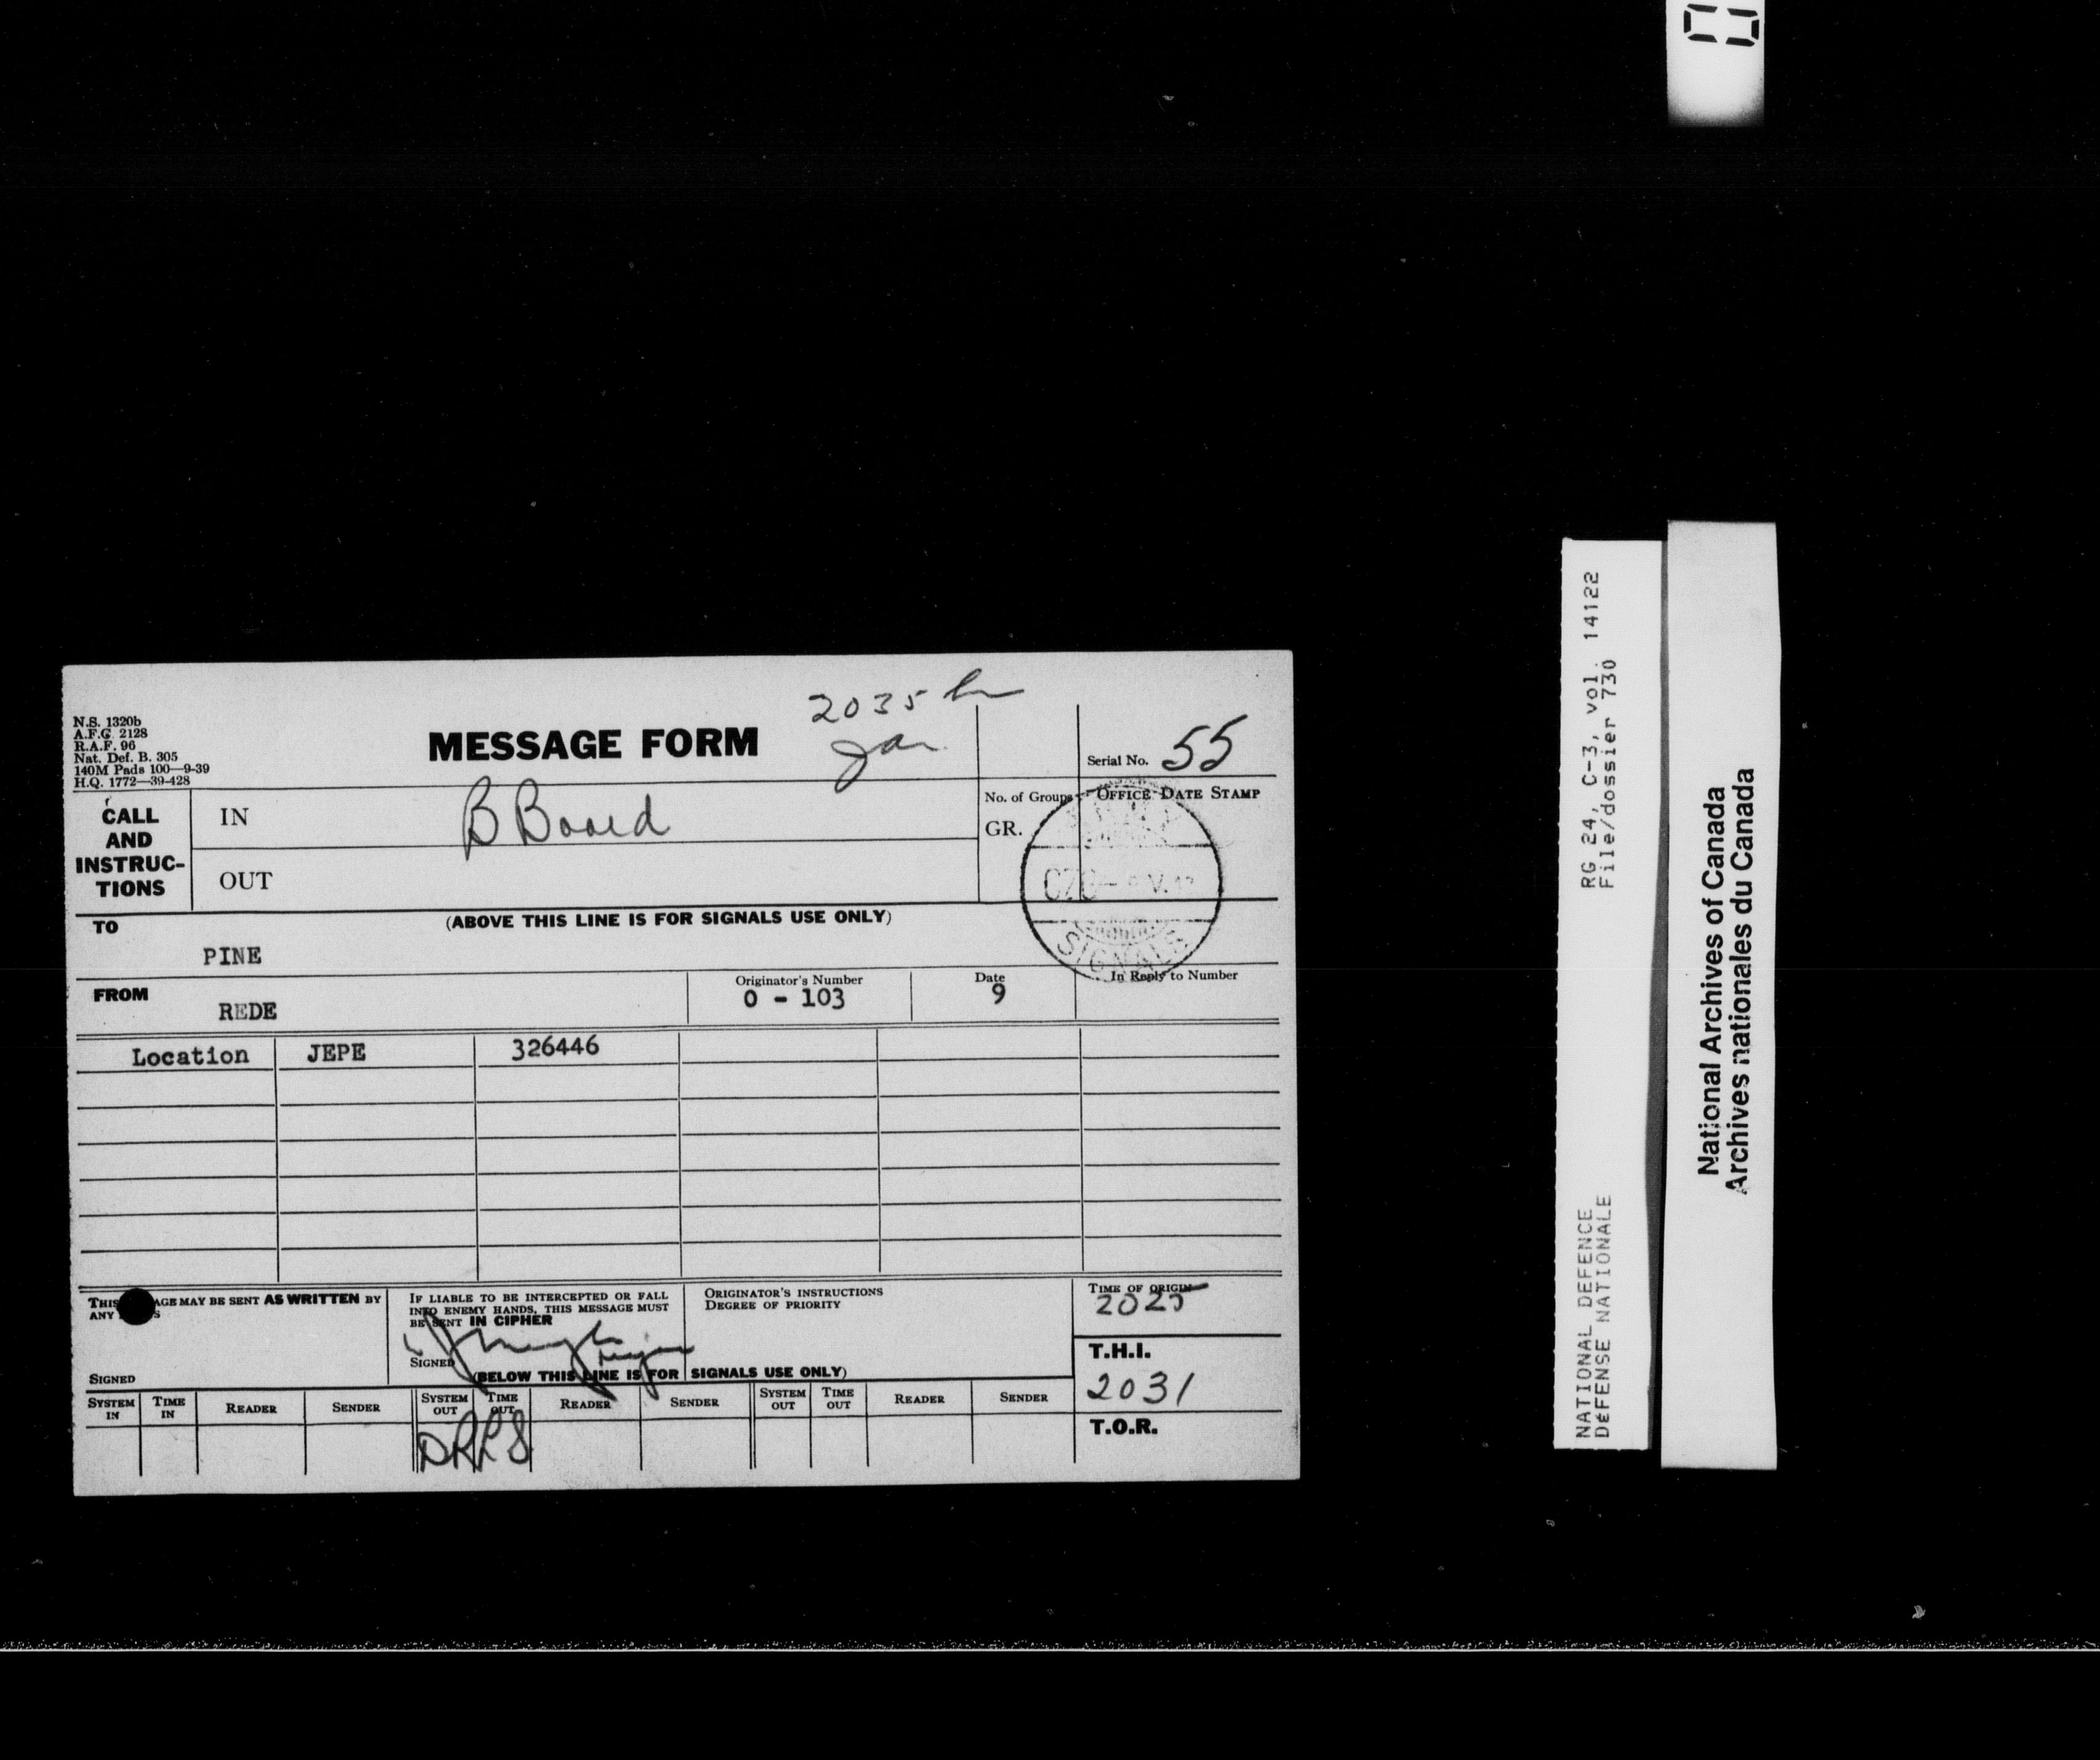 2035 hr
N.S. 1320b
A.F.G. 2128
R.A.F. 96
Nat. Def. B. 305
140M Pads 100—9-39
H.Q. 1772—39-428
MESSAGE FORM
Serial No. 55
CALL AND INSTRUC-TIONS
IN B Board
OUT
No. of Groups
GR.
OFFICE DATE STAMP
SIGNALS
(ABOVE THIS LINE IS FOR SIGNALS USE ONLY)
TO
PINE
FROM
REDE
Originator's Number
0 - 103
Date
9
In Reply to Number
Location JEPE 326446
THIS AGE MAY BE SENT AS WRITTEN BY
ANY S
SIGNED
IF LIABLE TO BE INTERCEPTED OR FALL
INTO ENEMY HANDS, THIS MESSAGE MUST
BE SENT IN CIPHER
SIGNED
ORIGINATOR'S INSTRUCTIONS
DEGREE OF PRIORITY
TIME OF ORIGIN
2025
T.H.I.
2031
T.O.R.
(BELOW THIS LINE IS FOR SIGNALS USE ONLY)
SYSTEM IN TIME IN READER SENDER SYSTEM OUT TIME OUT READER SENDER SYSTEM OUT TIME OUT READER SENDER
DRLS
RG 24, C-3, vol. 14122
File/dossier 730
NATIONAL DEFENCE
DéFENSE NATIONALE
National Archives of Canada
Archives nationales du Canada